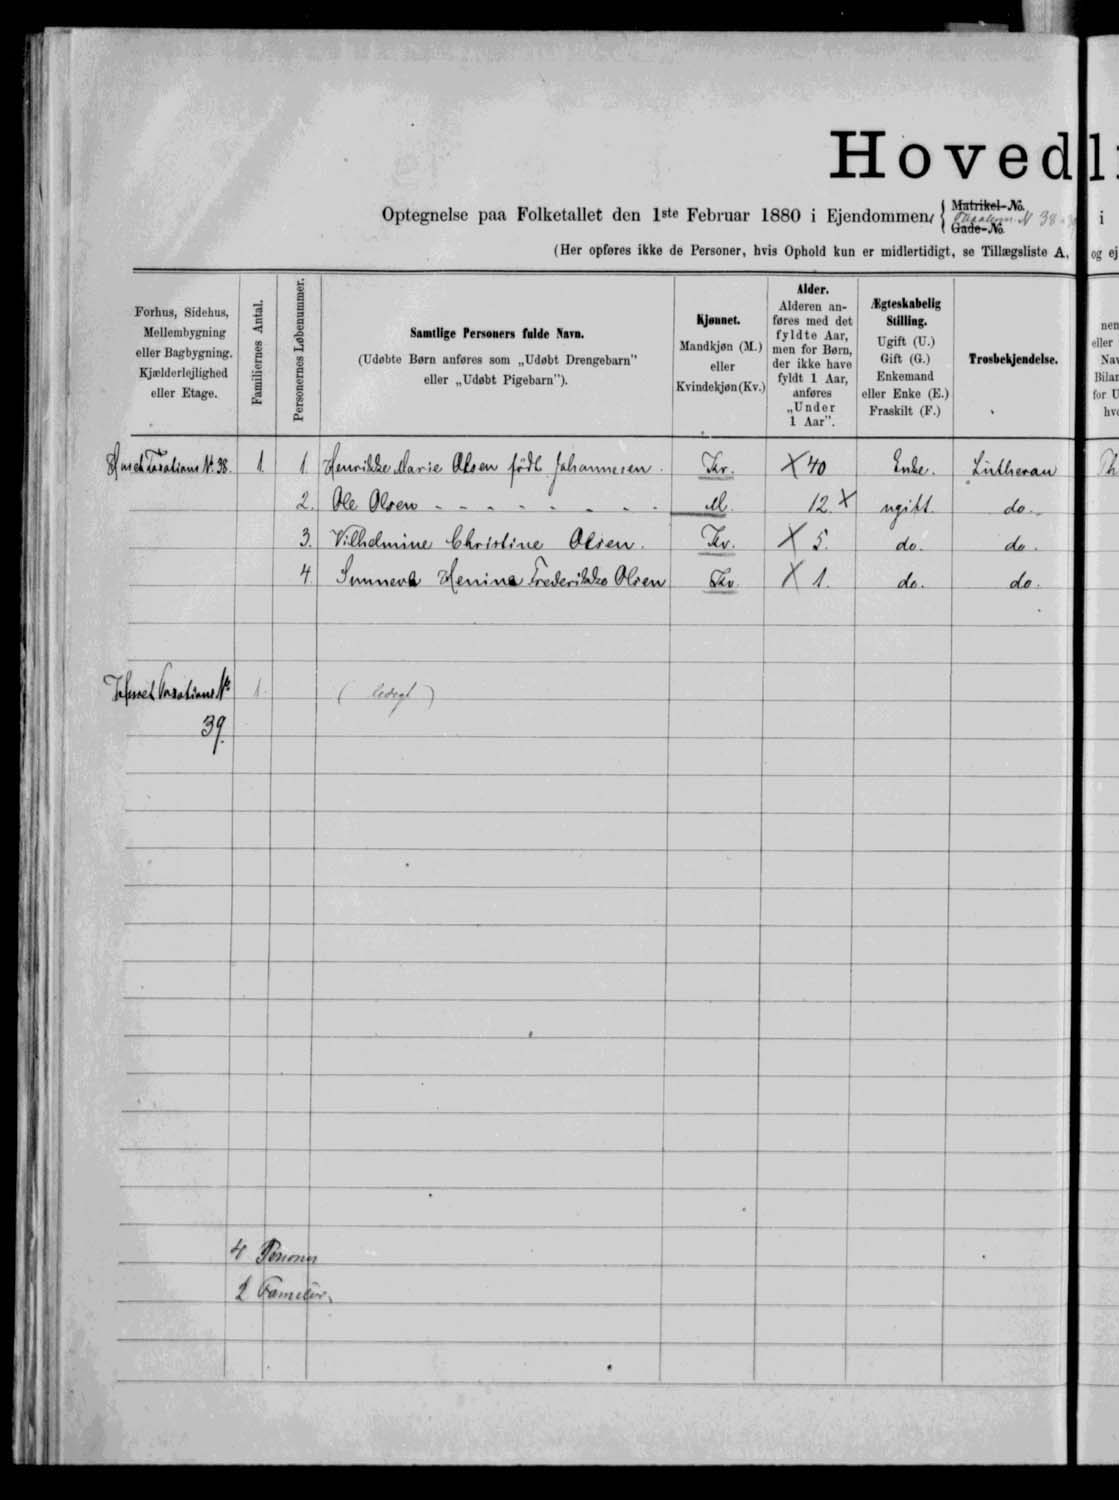 Hovedli
Optegnelse paa Folketallet den 1ste Februar 1880 i Ejendommen,
Matrikel-No.
N 38
Gade-No.
i
(Her opføres ikke de Personer, hvis Ophold kun er midlertidigt, se Tillægsliste A, og ej
Forhus, Sidehus,
Mellembygning
eller Bagbygning.
Kjælderlejlighed
eller Etage.
Familiernes Antal.
Personernes Løbenummer.
Samtlige Personers fulde Navn.
(Udøbte Børn anføres som „Udøbt Drengebarn"
eller „Udøbt Pigebarn").
Kjønnet.
Mandkjøn (M.)
eller
Kvindekjøn (Kv.)
Alder.
Alderen an-
føres med det
fyldte Aar,
men for Børn,
der ikke have
fyldt 1 Aar,
anføres
„Under
1 Aar".
Ægteskabelig
Stilling.
Ugift (U.)
Gift (G.)
Enkemand
eller Enke (E.)
Fraskilt (F.)
Trosbekjendelse.
nen
eller
Nav
Bilan
for U
hvo
Huset Taxations No. 38. 1. 1. Henrikke Marie Olsen født Johannesen. Kv. X 40 Enke. Lutheran Th
2. Ole Olsen - - - - - - - - M. 12. X ugift. do.
3. Vilhelmine Christine Olsen. Kv. X 5. do. do.
4. Sunneva Henine Frederikke Olsen Kv. X 1. do. do.
Huset Taxations No 1. (ledigt)
39.
4 Personer
2 Familier.